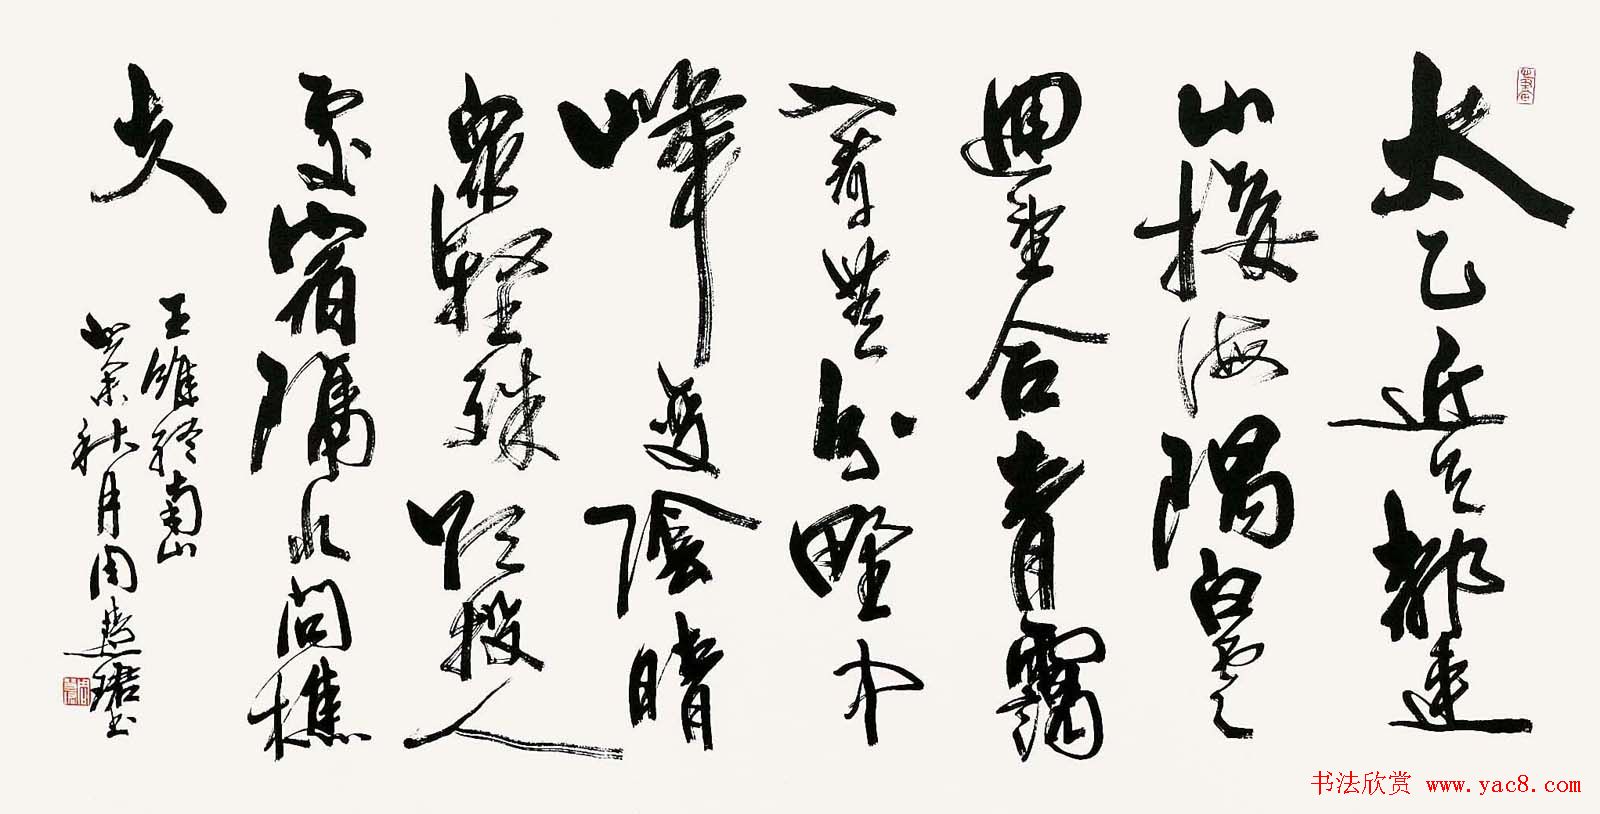 太乙近天都連
山接海隅白雲
迴望合青靄
入看無分野中
峰變陰晴
眾壑殊欲投人
處宿隔水問樵
夫
王維終南山
癸未秋月周慧珺书
书法欣赏 www.yac8.com